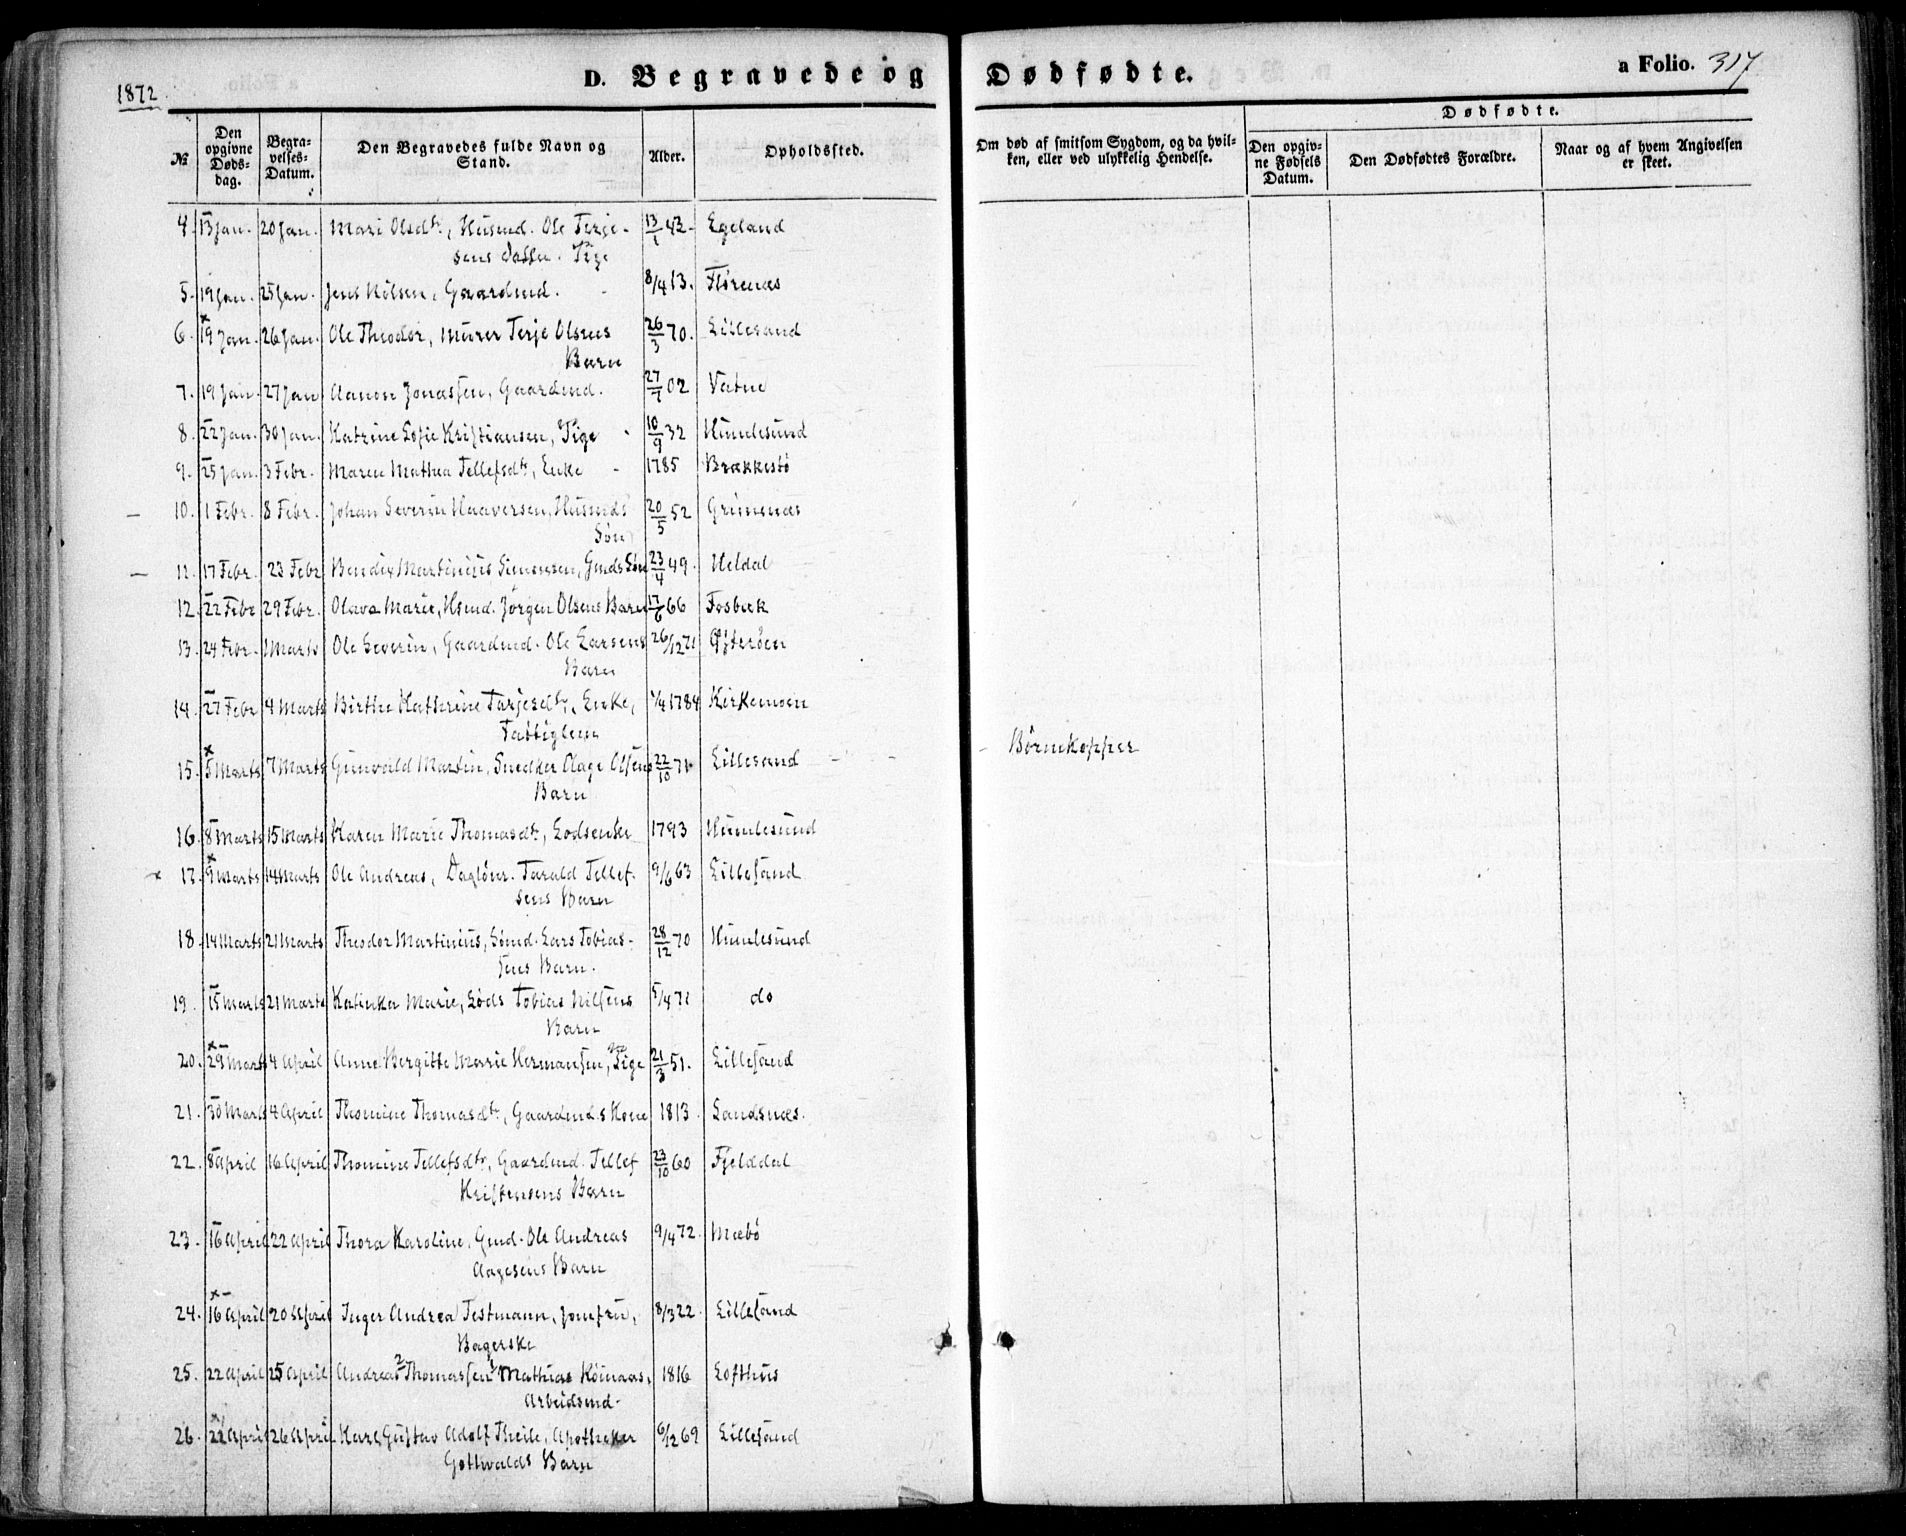 1872
D. Begravede og Dødfødte.
a Folio. 317
No
Den opgivne Døds-dag.
Begra-velses-Datum.
Den Begravedes fulde Navn og Stand.
Alder.
Opholdssted.
Om død af smitsom Sygdom, og da hvil-
ken, eller ved ulykkelig Hendelse.
Dødfødte.
Den opgiv-ne Fødsels Datum.
Den Dødfødtes Forældre.
Naar og af hvem Angivelsen er skeet.
4. 13 Jan. 20 Jan. Mari Olsdtr, Husmd. Ole Terje- 13/1 42. Egeland
sens Datter. Pige
5. 19 Jan. 25 Jan. Jens Nilsen, Gaardmd. 8/4 13. Florenæs
6. 19 Jan. 26 Jan. Ole Theodor, Murer Terje Olsens 26/3 70. Lillesand
Barn
7. 19 Jan. 27 Jan Aanon Jonassen, Gaardmd. 27/7 02 Vatne
8. 22 Jan. 30 Jan. Katrine Sofie Kristiansen, Pige 10/9 32 Humlesund
9. 25 Jan. 3 Febr. Maren Mathea Tellefsdtr, Enke 1785 Brækkestö
10. 1 Febr. 8 Febr. Johan Severin Haaversen, Husmds 20/5 52 Grimenæs
Søn
11. 17 Febr. 23 Febr Bendix Martinius Simonsen, Gmds Søn 23/4 49. Heldal
12. 22 Febr 29 Febr. Olava Marie, Hsmd. Jørgen Olsens Barn 17/6 66 Fosbæk
13. 24 Febr. 1 Marts Ole Severin, Gaardmd. Ole Larsens 26/12 71 Ytterøen
Barn
14. 27 Febr 4 Marts Birthe Kathrine Tarjesdtr, Enke, 1/4 1784 Kirkemoen
Fattiglem
15. 5 Marts 7 Marts Gunvald Martin, Snedker Aage Olsens 22/10 71 Lillesand - Børnekopper
Barn
16. 8 Marts 15 Marts Karen Marie Thomasdtr, Lodsenke 1793 Humlesund
17. 9 Marts 14 Marts Ole Andreas, Daglönr. Tarald Tellef- 9/6 63 Lillesand
sens Barn
18. 14 Marts 21 Marts Theodor Martinius, Sømd. Lars Tobias- 28/12 70 Humlesund
sens Barn.
19. 15 Marts 21 Marts Katinka Marie, Lods Tobias Nilsens 5/4 71 do
Barn
20. 29 Marts 4 April Anne Bergitte Marie Hermansen, Pige 21/3 51. Lillesand
21. 30 Marts 4 April Thomine Thomasdtr, Gaardmds Kone 1813 Sandsnæs.
22. 8 April 16 April Thomine Tellefsdtr, Gaardmd. Tellef 23/10 60 Fjelddal
Kristensens Barn
23. 16 April 22 April Thora Karoline, Gmd. Ole Andreas 9/4 72. Mæbö
Aagesens Barn
24. 16 April 20 April Inger Andrea Testmann, Jomfru, 8/3 22. Lillesand
Bagerske
25. 22 April 25 April Andreas 2 Thomassen 1 Mathias Röinaas, 1816 Lofthus
Arbeidsmd.
26. 22 April 26 April Karl Gustav Adolf Theile, Apotheker 6/12 69 Lillesand
Gottwalds Barn